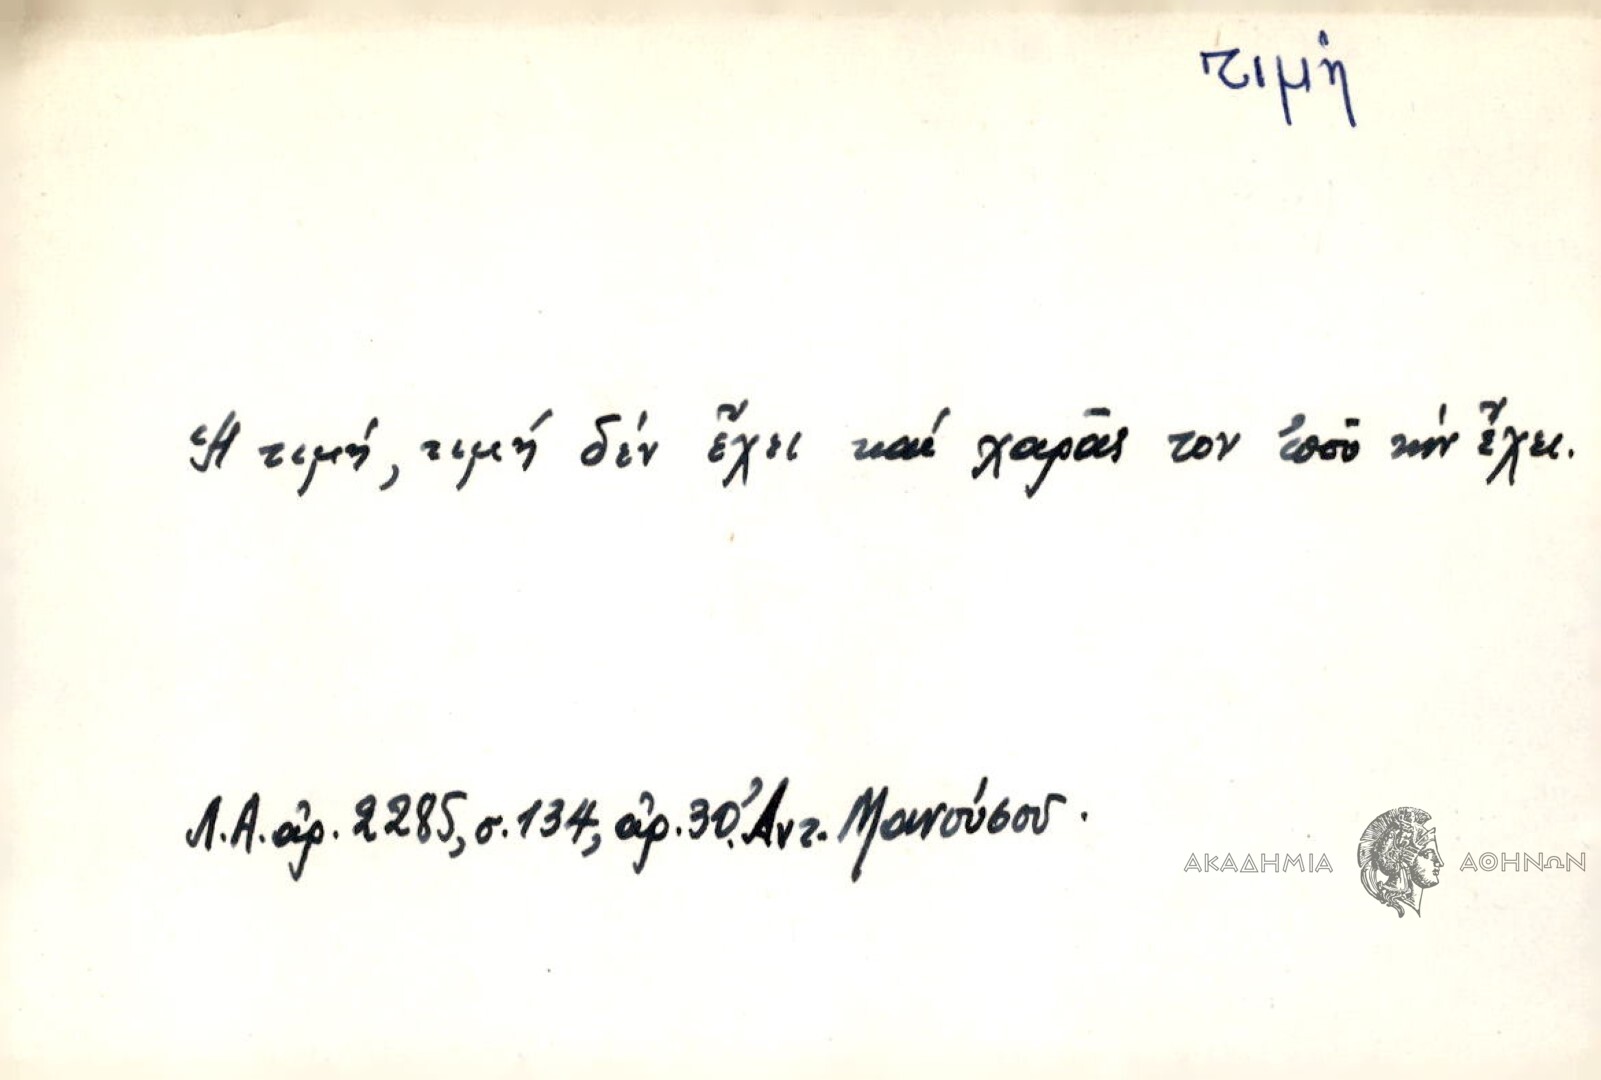 τιμή
Ἡ τιμή, τιμή δέν ἔχει καί χαρᾶς τον ὁποῦ τήν ἔχει.
Λ.Α. ἀρ. 2285, σ. 134, ἀρ. 30. Ἀντ. Μανούσου.
ΑΚΑΔΗΜΙΑ ΑΘΗΝΩΝ